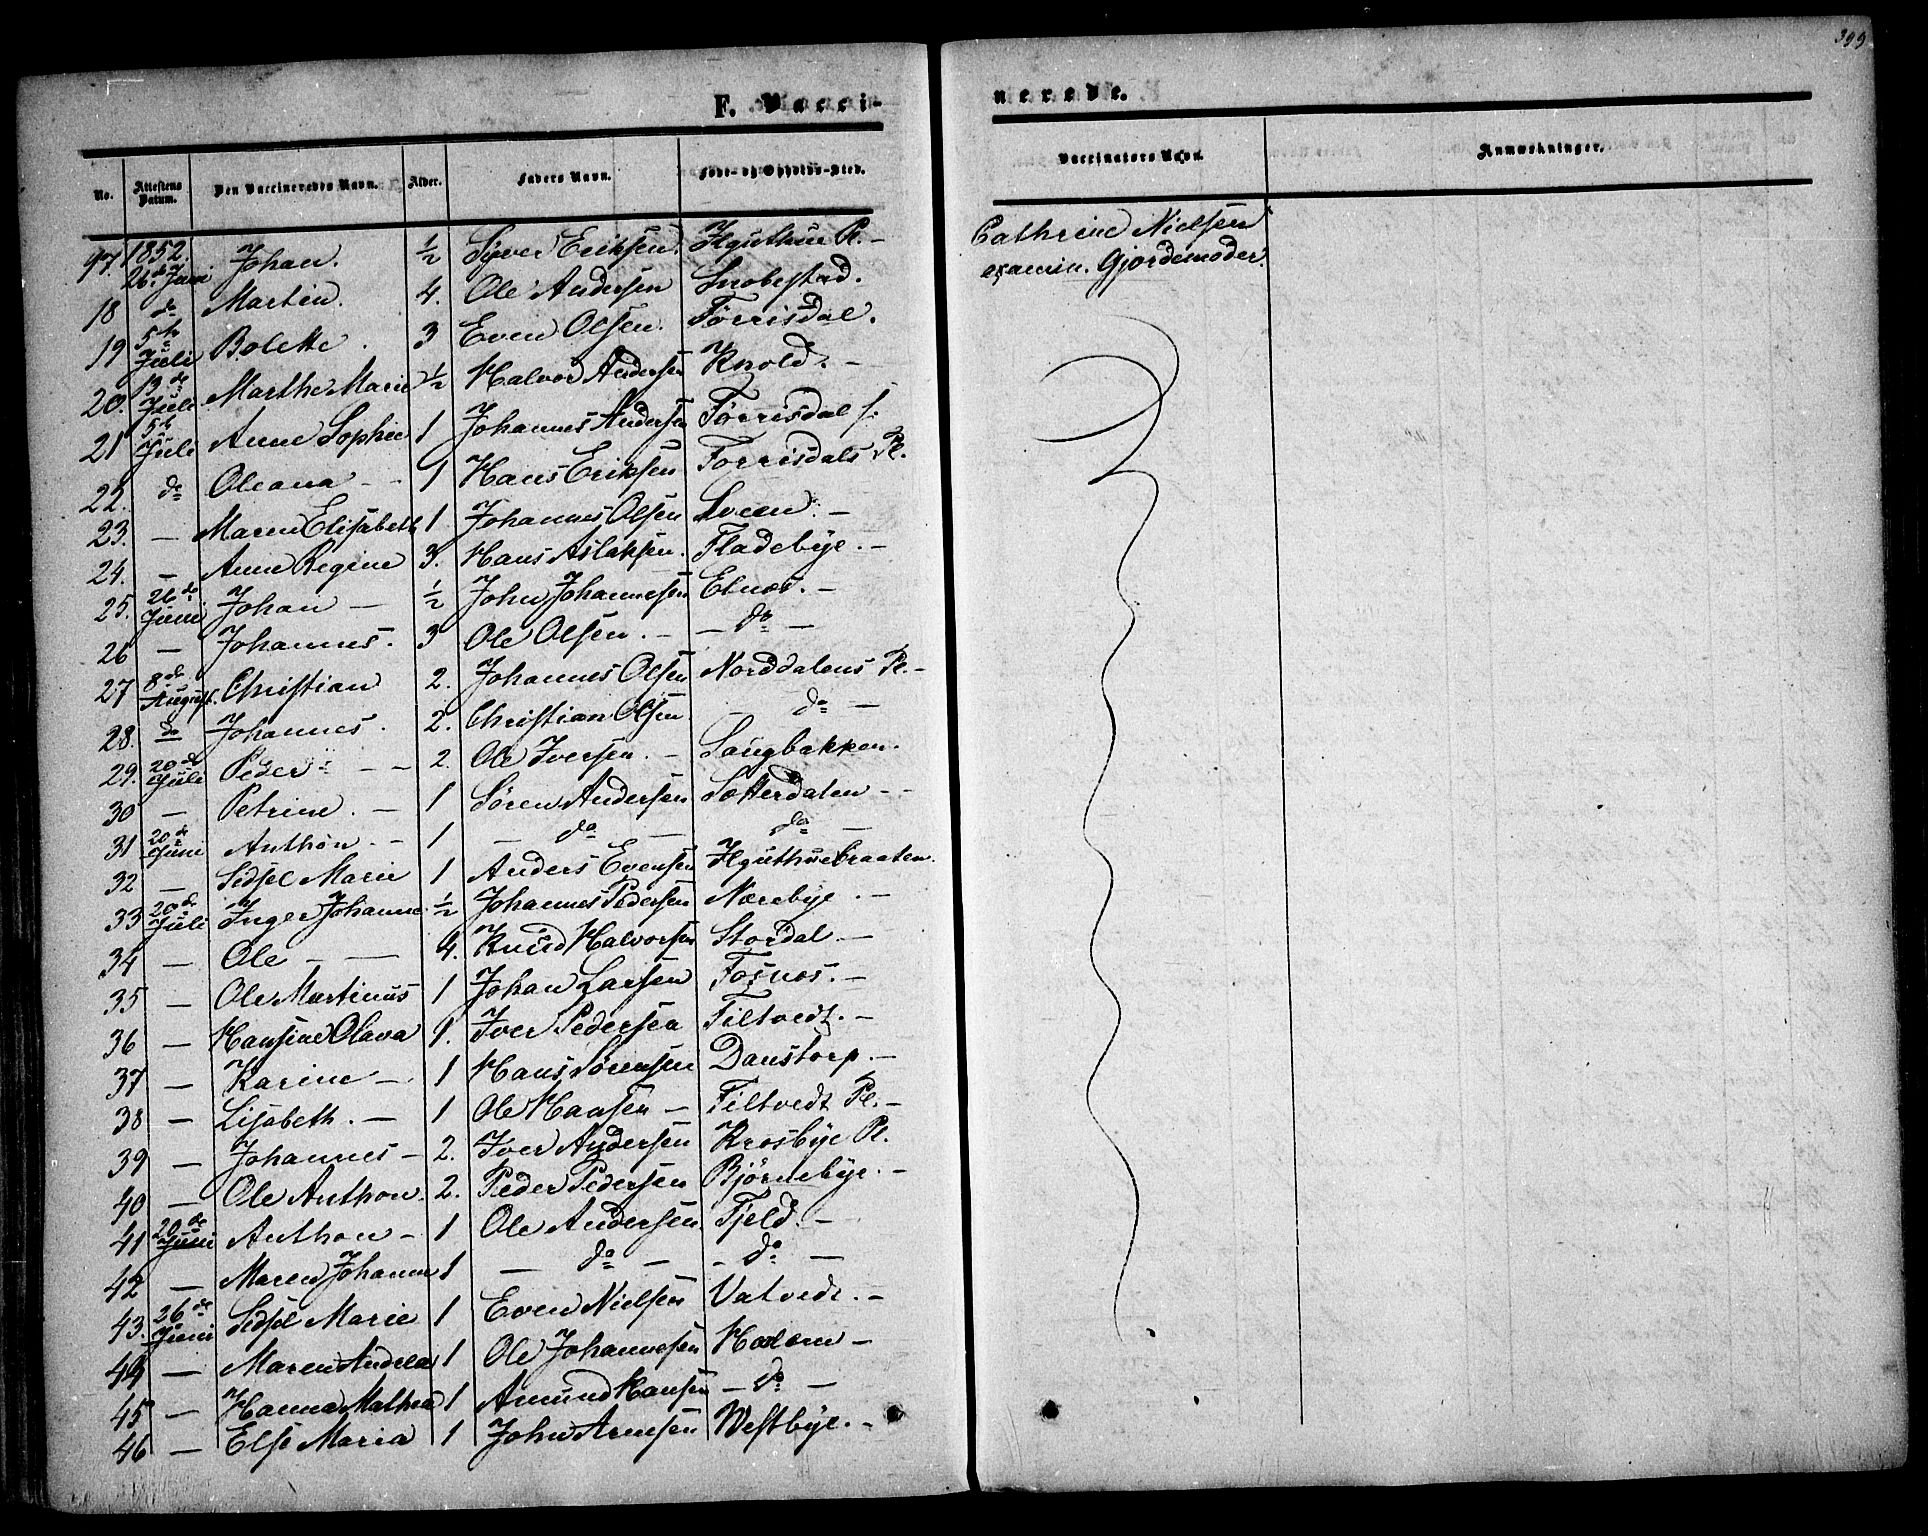 399
F. Vacci-
nerede.
No. Attestens Datum. Den Vaccineredes Navn. Alder. Faders Navn. Føde- og Opholds-Sted.
Vaccinators Navn. Anmærkninger.
97 1852. 26de Juni Johan. ½ Syver Eriksen. Pl. -
18 do Martin. 4. Ole Andersen Snobestad.
19 5te Juli Bolette. 3 Even Olsen. Torrisdal.
20. 13de Juli Marthe Marie ½ Halvor Andersen Knold. -
21 5te Juli Anne Sophie 1 Johannes Andersen Torrisdal
22. do Oleana - 1 Hans Eriksen Torrisdals Pl.
23. — Maren Elisabeth 1. Johannes Olsen Sveen. -
24. — Anne Regine 3. Hans Aslaksen. Fladebye. -
25. 26de Juni Johan — ½ John Johannesen Elnæs. -
26 — Johannes. 3 Ole Olsen. - — do —
27 8de August. Christian 2. Johannes Olsen Norddalens Pl. -
28. do Johannes. 2. Christian Olsen do —
29. 20de Juli Peder - - 2. Ole Iversen. - Saugbakken.
30 — Petrine. - 1 Søren Andersen Sætterdalen - -
31 20de Juni Anthon. - 1 — do — do —
32 — Sidsel Marie 1 Anders Evensen
33 20de Juli Inger Johanne ½ Johannes Pedersen Nærebye. -
34 — Ole - — 4. Knud Halvorsen Stordal -
35 — Ole Martinus 1 Johan Larsen Fosnæs. -
36 — Hansine Olava 1. Iver Pedersen Tiltvedt. -
37 — Karine - 1 Hans Sørensen Danstorp. -
38 — Lisabeth. - 1 Ole Hansen - Tiltvedt Pl. -
39 — Johannes - 2. Iver Andersen Krosbye Pl.
40 — Ole Anthon. 2. Peder Pedersen Bjørnebye. -
41 20de Juni Anthon - 1 Ole Andersen Fjeld. -
42 — Maren Johanne 1 — do — - do —
43. 26de Juni Sidsel Marie 1 Even Nielsen Vatvedt. -
44 — Maren Andrea 1 Ole Johannesen -
45 — Hanna Mathea 1 Amund Hansen - do -
46 — Else Maria 1 John Arnesen Westbye. -
Cathrine Nielsen
examin. Gjordemoder.